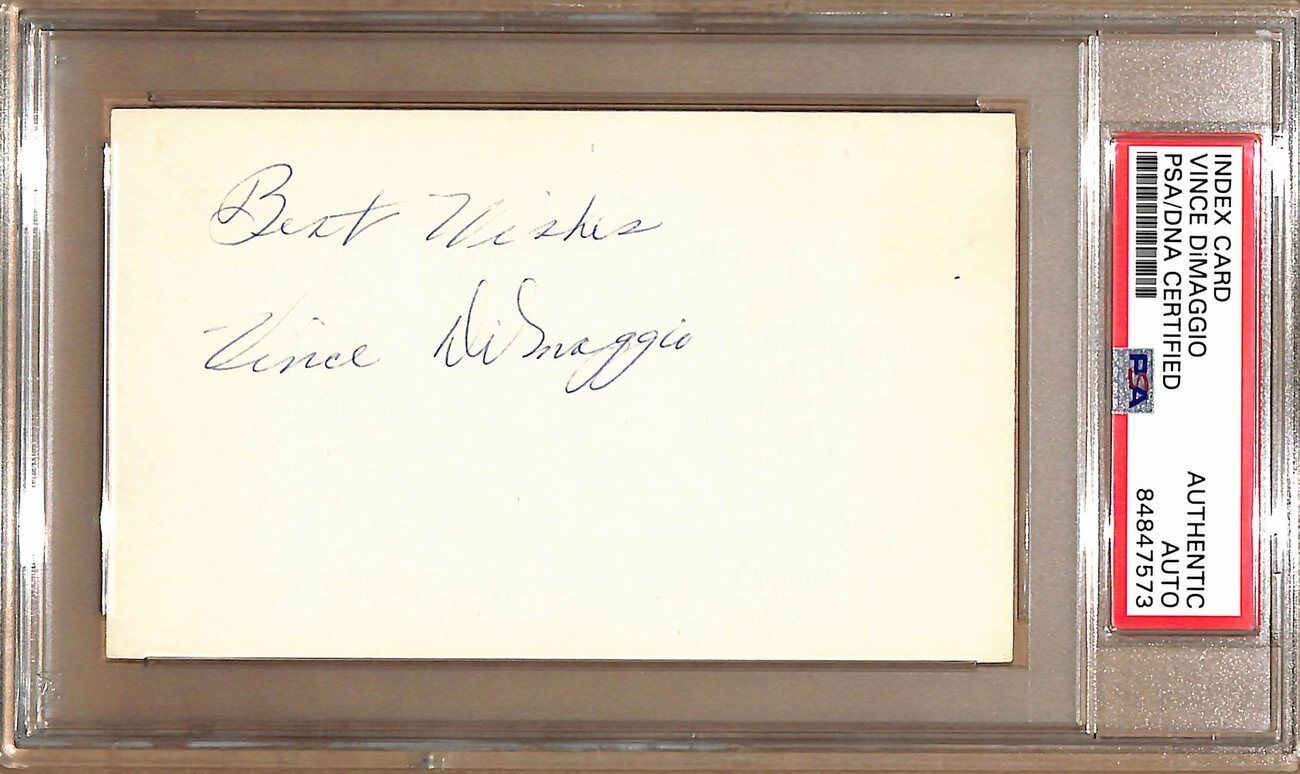 Best Wishes
Vince DiMaggio
INDEX CARD
VINCE DiMAGGIO
PSA/DNA CERTIFIED
PSA
AUTHENTIC
AUTO
84847573